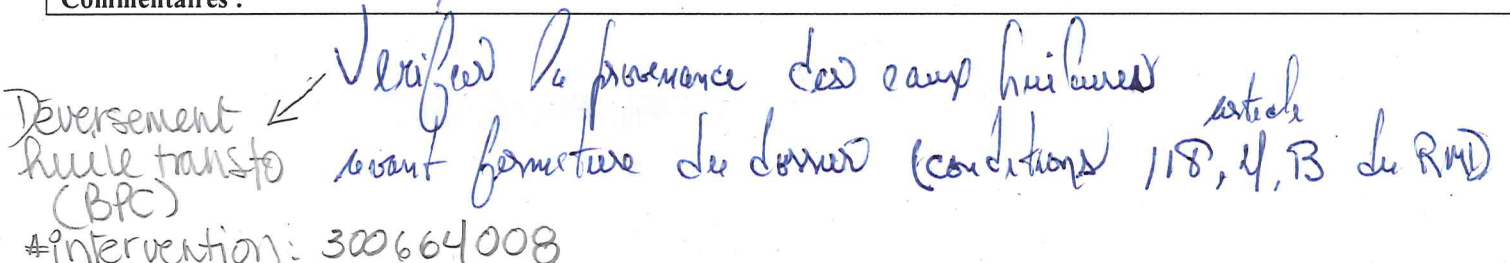 Commentaires :
Vérifier la provenance des eaux huileuses
article
avant fermeture du dossier (conditions 118, 4, B du RMD)
Déversement
huile transfo
(BPC)
#intervention: 300664008